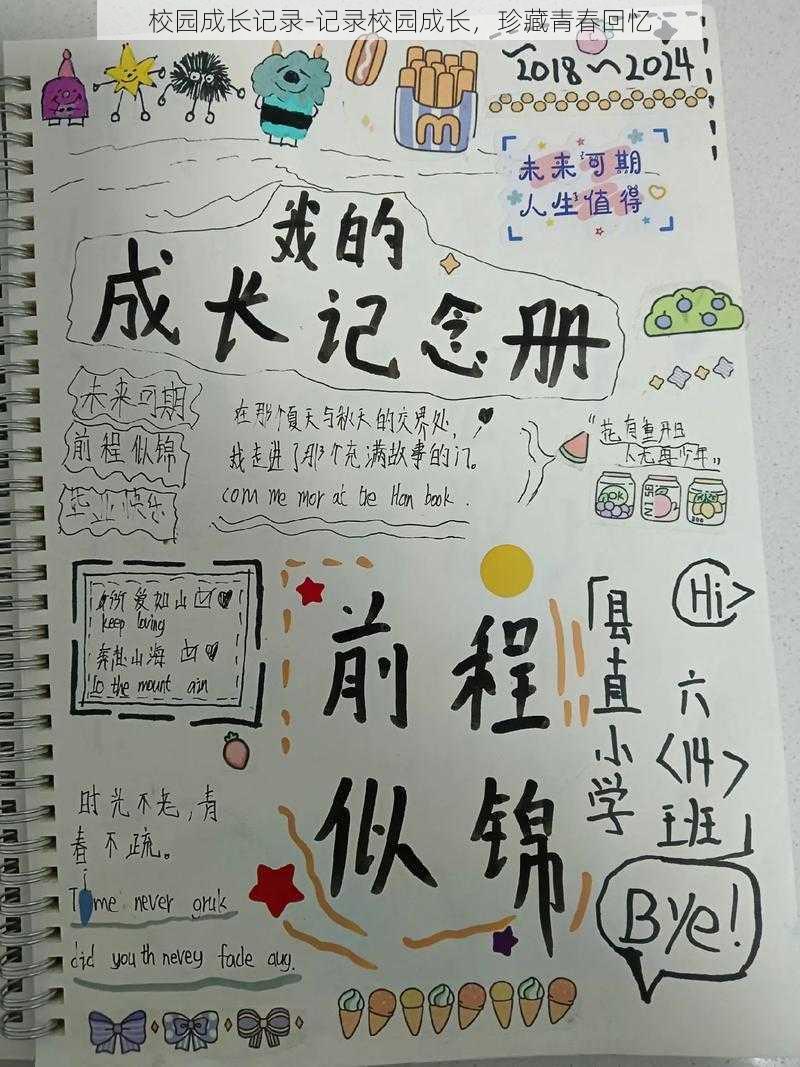 校园成长记录-记录校园成长，珍藏青春回忆
2018~2024
未来可期
人生值得
我的
成长记念册
未来可期
前程似锦
毕业快乐
在那个夏天与秋天的交界处，
我走进了那个充满故事的门。
com me mor at tie Han book.
"花有重开日
人无再少年"
所爱如山
keep loving
奔赴山海
to the mount ain
前程
似锦
「县直小学
六
<14>
班」
Hi
时光不老，青
春不疏。
Time never gruk
did you th nevey fade aug.
Bye!